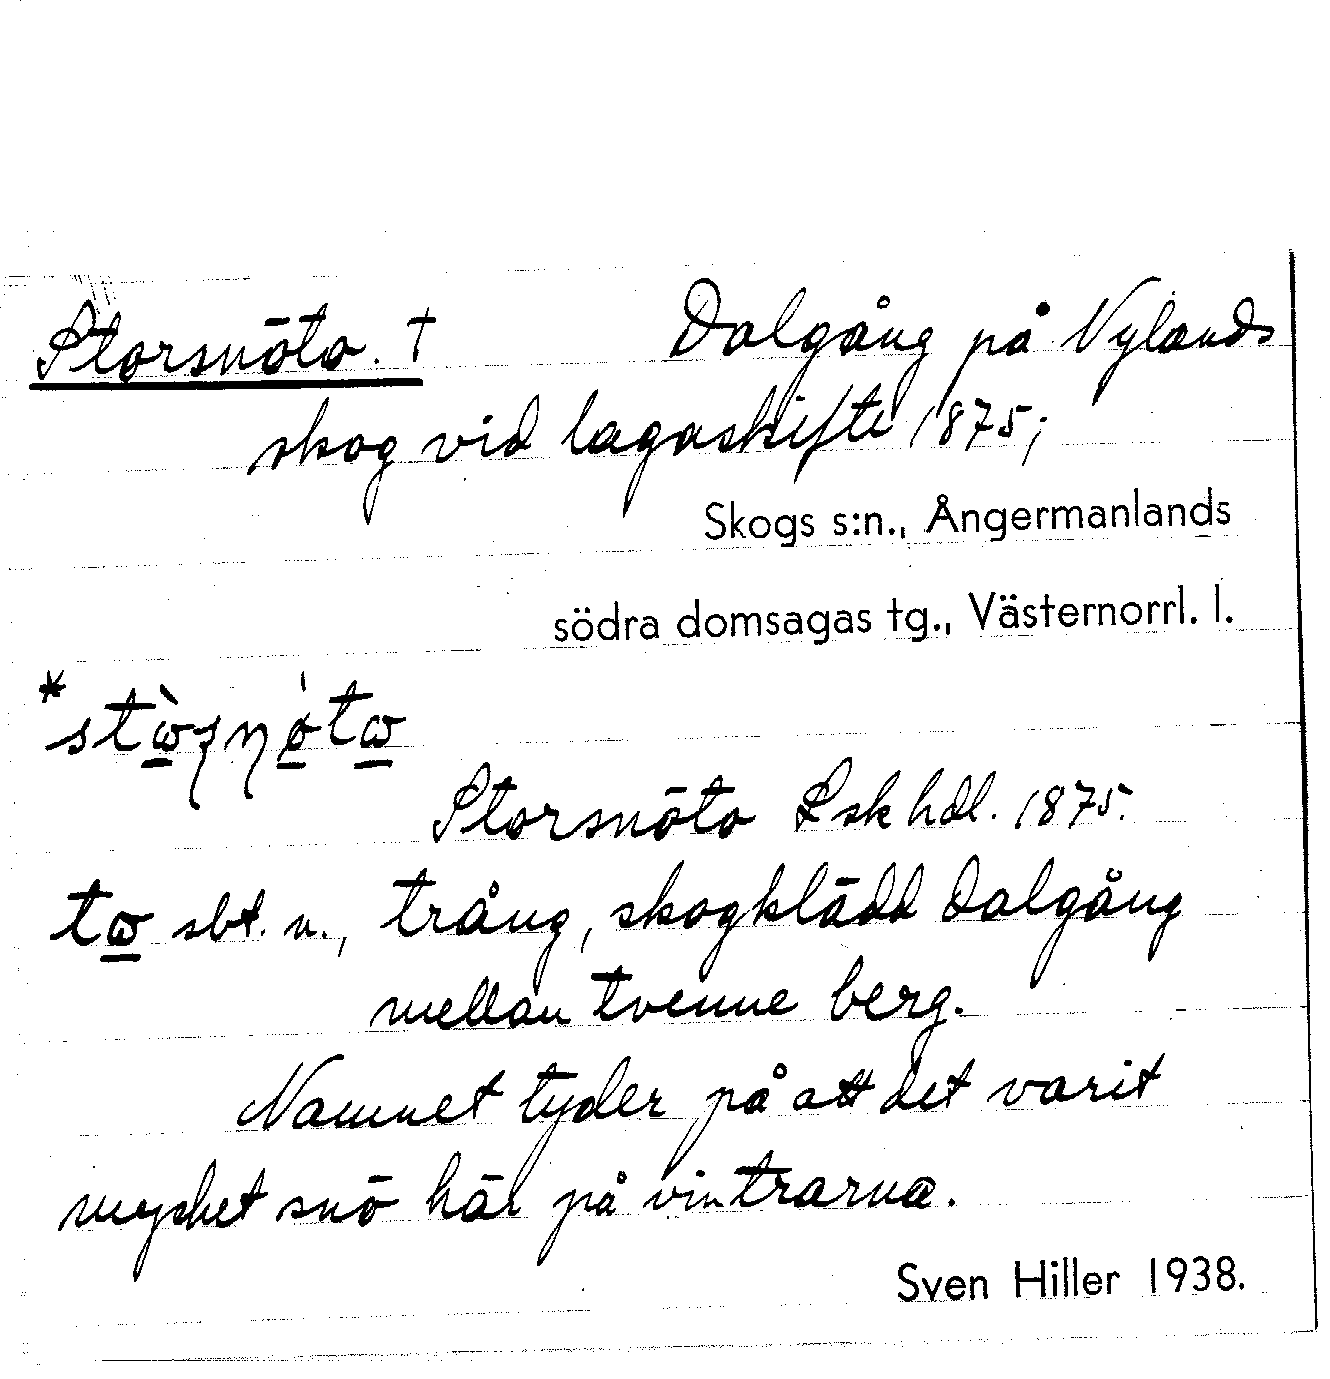 Storsnöto. † Dalgång på Nylands
skog vid lagaskifte 1875;
Skogs s:n., Ångermanlands
södra domsagas tg., Västernorrl. l.
Storsnöto Lskhdl. 1875.
sbt. n., trång, skogklädd dalgång
mellan tvenne berg.
Namnet tyder på att det varit
mycket snö här på vintrarna.
Sven Hiller 1938.